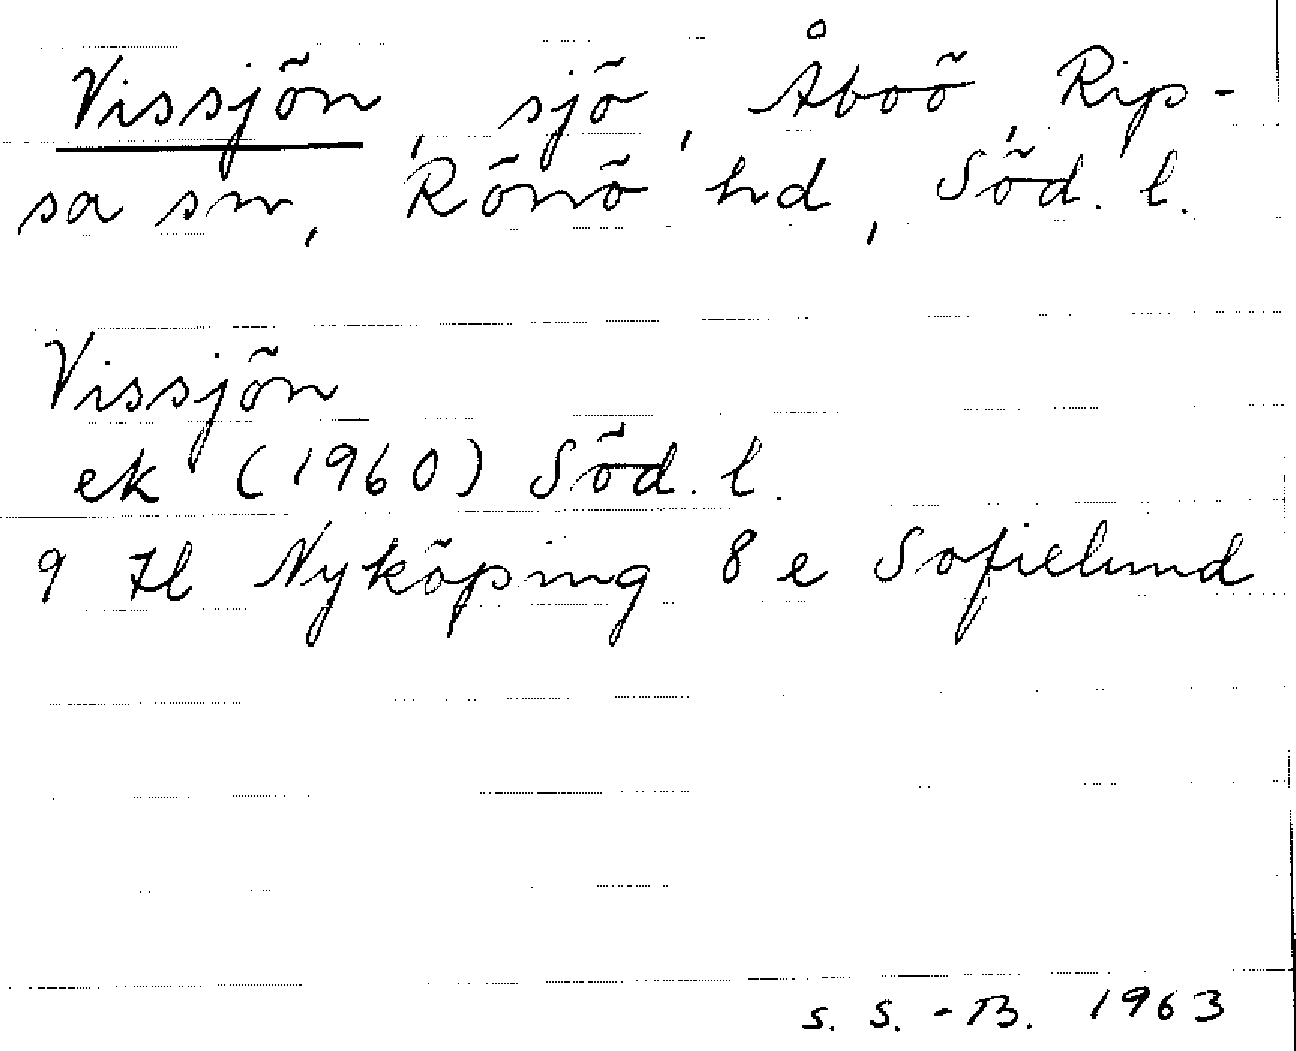 Vissjön, sjö, Åboö, Rip-
sa sn, Rönö hd, Söd. l.
Vissjön
ek (1960) Söd. l.
9 H Nyköping 8 e Sofielund
S. S.-B. 1963